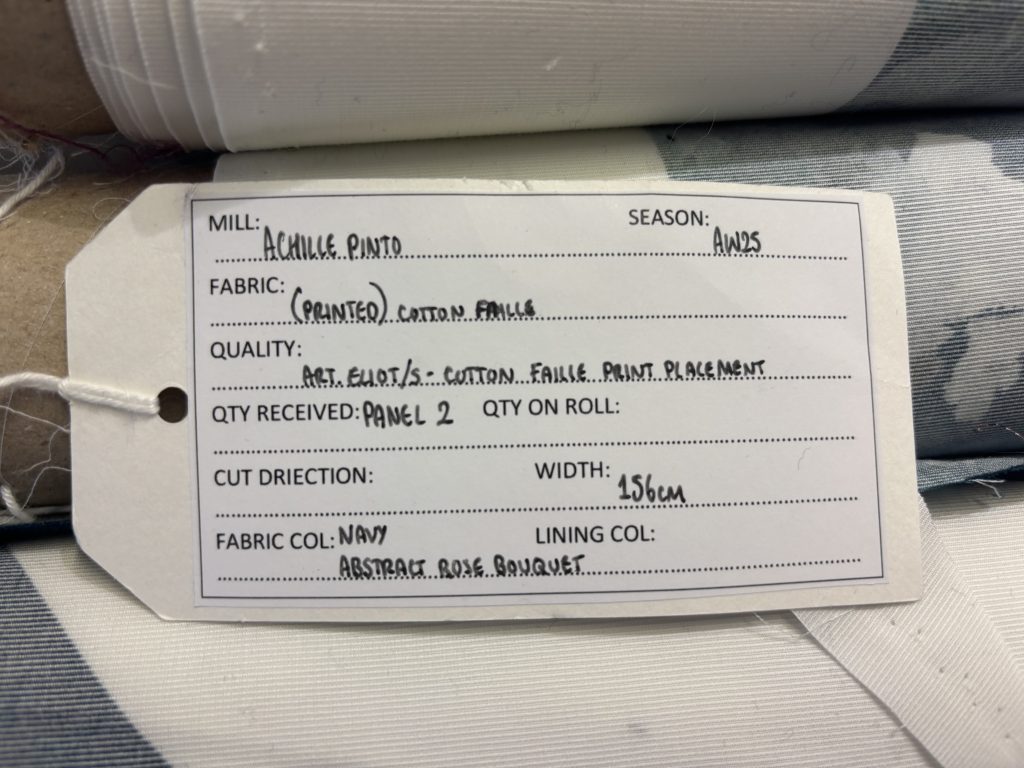 MILL: ACHILLE PINTO SEASON: AW25
FABRIC: (PRINTED) COTTON FAILLE
QUALITY: ART. ELIOT/S - COTTON FAILLE PRINT PLACEMENT
QTY RECEIVED: PANEL 2 QTY ON ROLL:
CUT DRIECTION: WIDTH: 156CM
FABRIC COL: NAVY LINING COL:
ABSTRACT ROSE BOUQUET